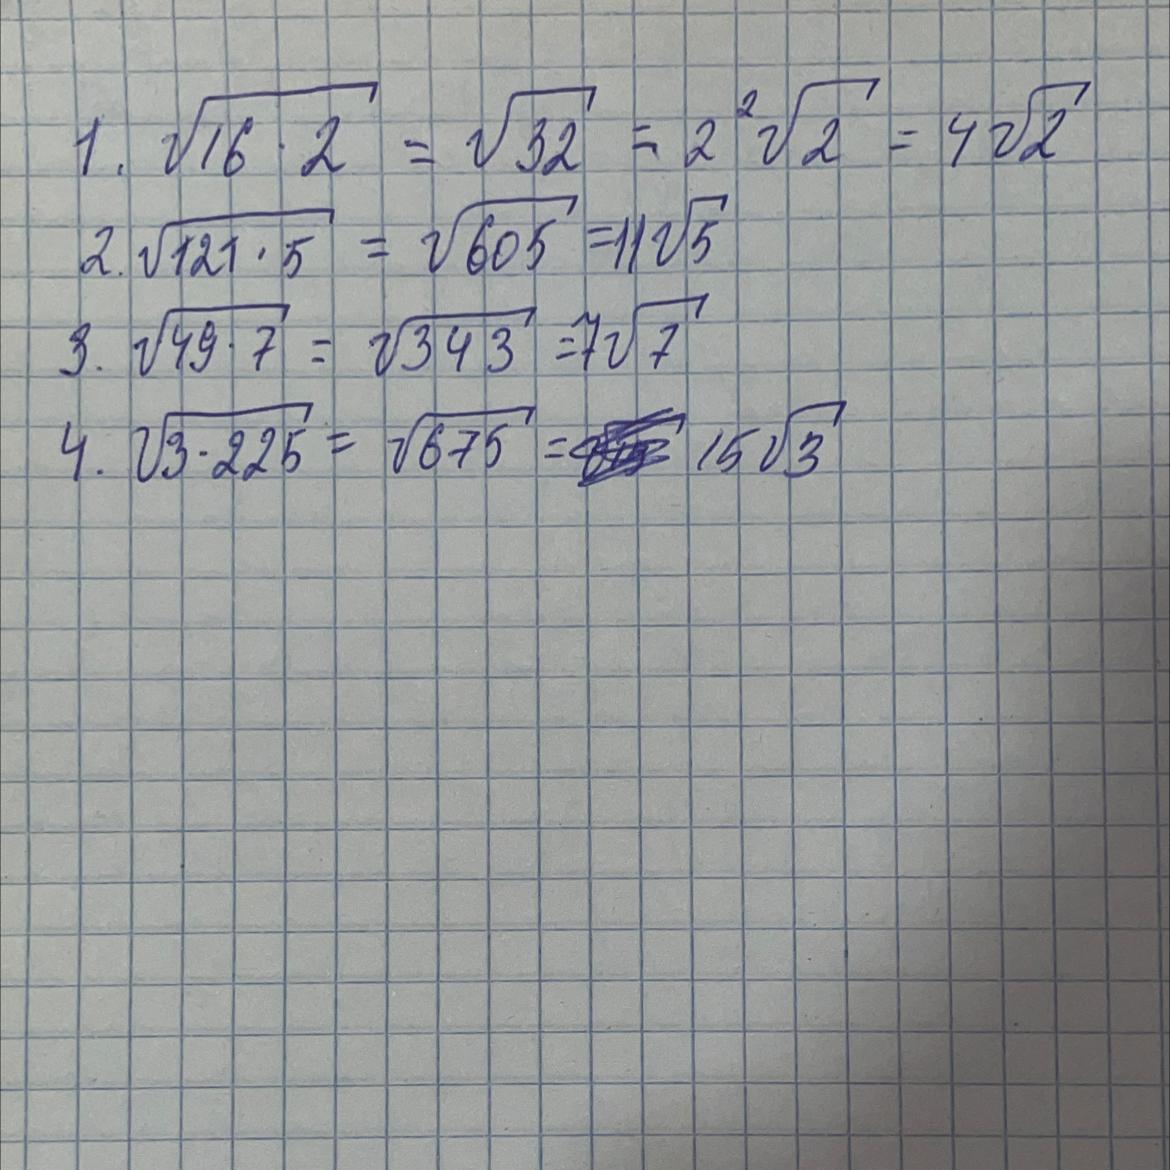 1. √16·2 = √32 = 2²√2 = 4√2
2. √121·5 = √605 = 11√5
3. √49·7 = √343 = 7√7
4. √3·225 = √675 = 15√3